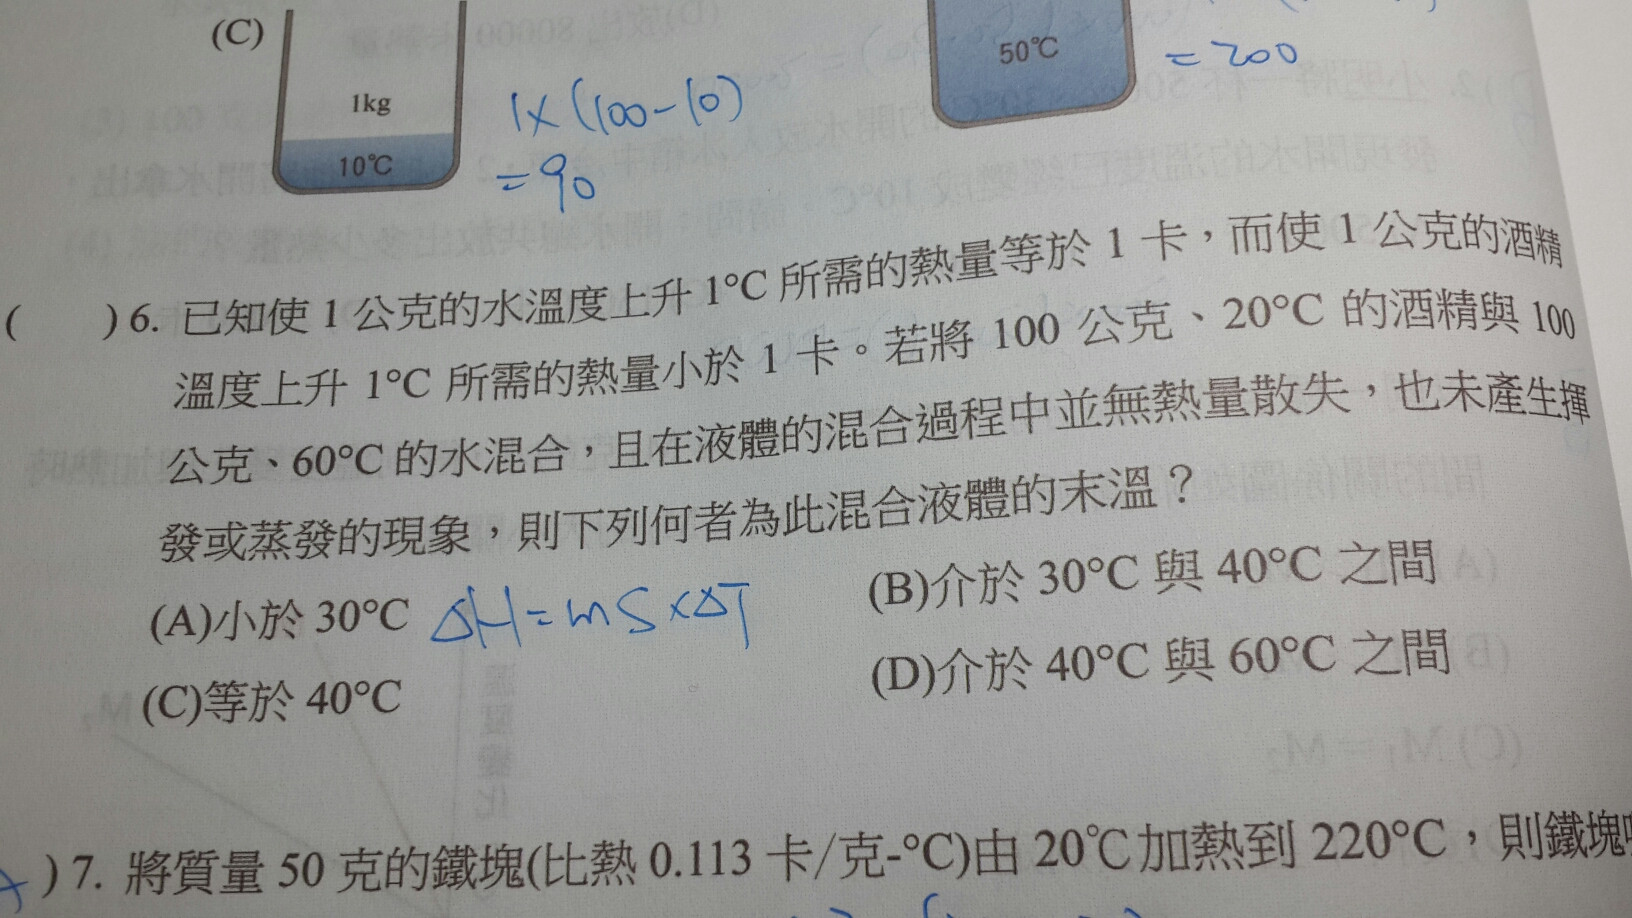 (C)
1kg
10°C
1×(100-10)
=90
50°C
=200
( )6. 已知使 1 公克的水溫度上升 1°C 所需的熱量等於 1 卡，而使 1 公克的酒精
溫度上升 1°C 所需的熱量小於 1 卡。若將 100 公克、20°C 的酒精與 100
公克、60°C 的水混合，且在液體的混合過程中並無熱量散失，也未產生揮
發或蒸發的現象，則下列何者為此混合液體的末溫？
(A)小於 30°C ΔH=mS×ΔT (B)介於 30°C 與 40°C 之間
(C)等於 40°C (D)介於 40°C 與 60°C 之間
)7. 將質量 50 克的鐵塊(比熱 0.113 卡/克-°C)由 20℃加熱到 220°C，則鐵塊